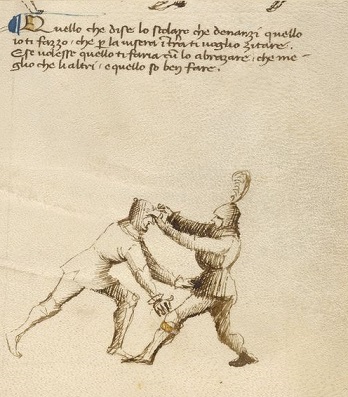 Quello che dise lo scolaro che denanzi quello
io ti fazzo, che p la visera in tra ti voglio zitare.
E se volesse quello ti faria cū lo abrazare, che me-
glio che li altri, e quello so ben fare.